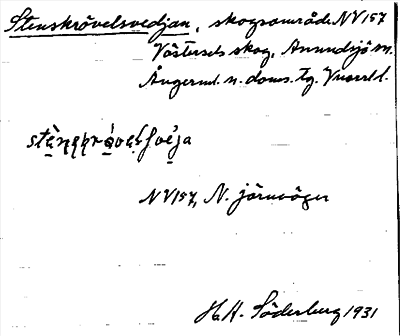 Stenskrövelsvedjan, skogsområde NV157
Västersels skog, Anundsjö sn.
Ångerml. n. doms. tg. Vnorrl l.
NV157, N. järnväger
H.H. Söderberg 1931